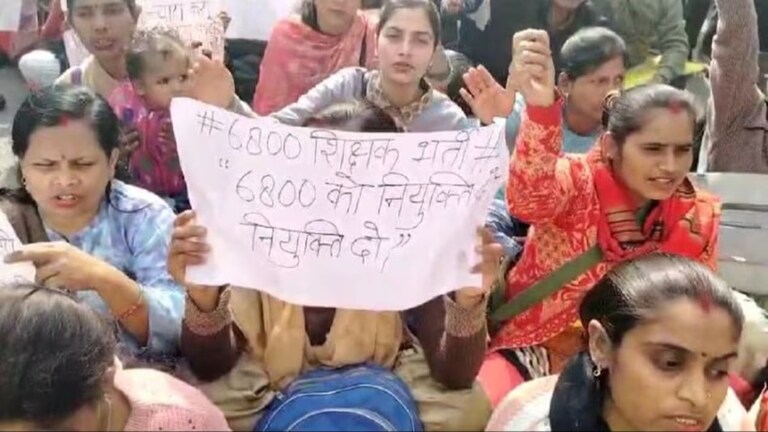 #6800 शिक्षक भर्ती#
"6800 को नियुक्ति दो
नियुक्ति दो,"